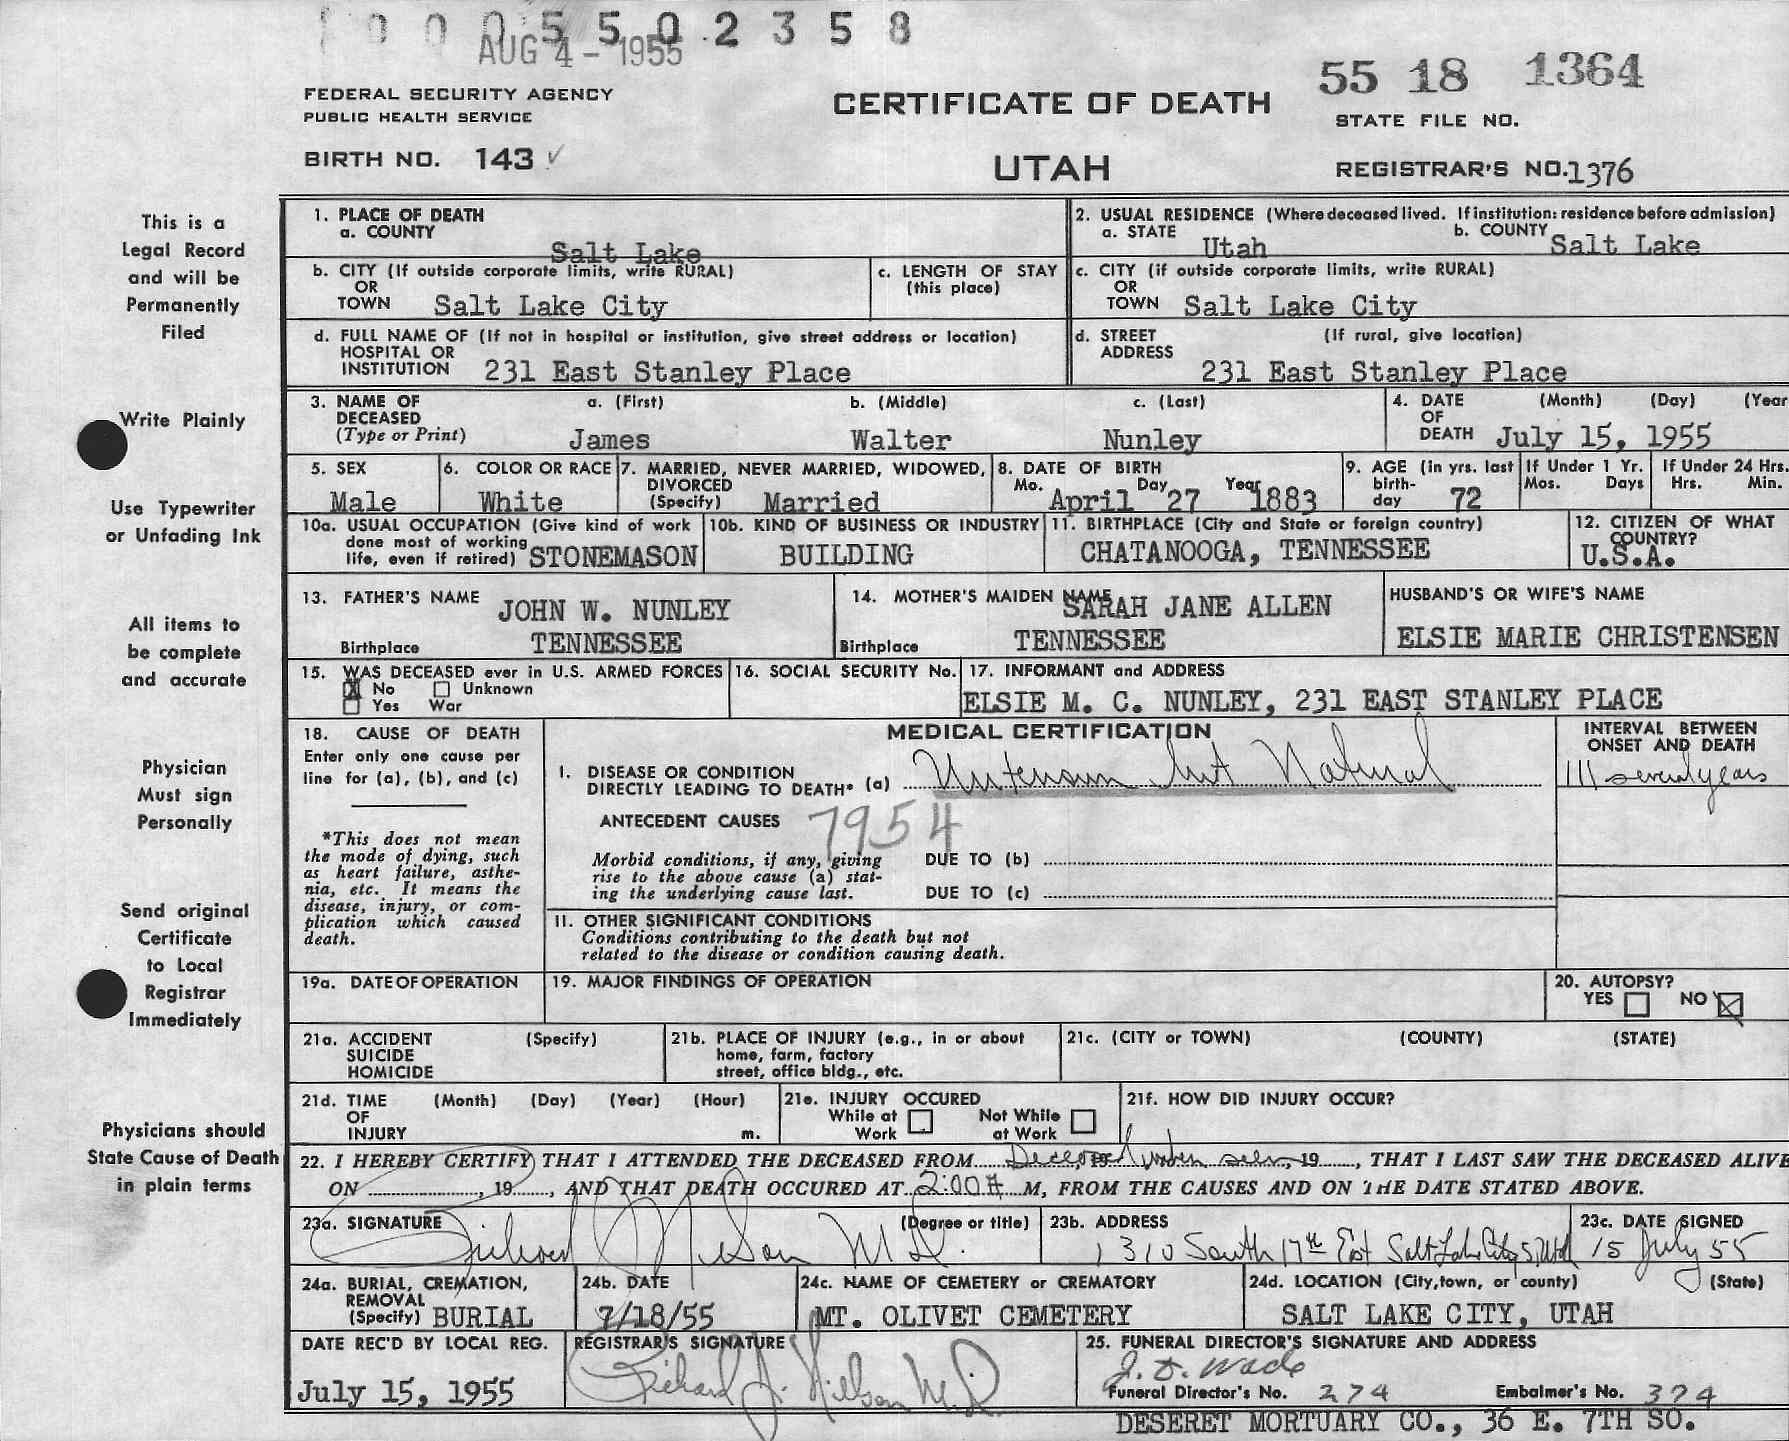 0005502358
AUG 4 - 1955
55 18 1364
FEDERAL SECURITY AGENCY
PUBLIC HEALTH SERVICE
CERTIFICATE OF DEATH
STATE FILE NO.
BIRTH NO. 143
UTAH
REGISTRAR'S NO. 1376
This is a
Legal Record
and will be
Permanently
Filed
Write Plainly
Use Typewriter
or Unfading Ink
All items to
be complete
and accurate
Physician
Must sign
Personally
Send original
Certificate
to Local
Registrar
Immediately
Physicians should
State Cause of Death
in plain terms
1. PLACE OF DEATH
a. COUNTY
Salt Lake
2. USUAL RESIDENCE (Where deceased lived. If institution: residence before admission)
a. STATE Utah b. COUNTY Salt Lake
b. CITY (If outside corporate limits, write RURAL)
OR
TOWN Salt Lake City
c. LENGTH OF STAY
(this place)
c. CITY (if outside corporate limits, write RURAL)
OR
TOWN Salt Lake City
d. FULL NAME OF (If not in hospital or institution, give street address or location)
HOSPITAL OR
INSTITUTION 231 East Stanley Place
d. STREET (If rural, give location)
ADDRESS
231 East Stanley Place
3. NAME OF
DECEASED
(Type or Print)
a. (First) b. (Middle) c. (Last)
James Walter Nunley
4. DATE (Month) (Day) (Year
OF
DEATH July 15, 1955
5. SEX
Male
6. COLOR OR RACE
White
7. MARRIED, NEVER MARRIED, WIDOWED,
DIVORCED
(Specify) Married
8. DATE OF BIRTH
Mo. Day Year
April 27 1883
9. AGE (in yrs. last
birth-
day 72
If Under 1 Yr.
Mos. Days
If Under 24 Hrs.
Hrs. Min.
10a. USUAL OCCUPATION (Give kind of work
done most of working
life, even if retired) STONEMASON
10b. KIND OF BUSINESS OR INDUSTRY
BUILDING
11. BIRTHPLACE (City and State or foreign country)
CHATANOOGA, TENNESSEE
12. CITIZEN OF WHAT
COUNTRY?
U.S.A.
13. FATHER'S NAME JOHN W. NUNLEY
Birthplace TENNESSEE
14. MOTHER'S MAIDEN NAME SARAH JANE ALLEN
Birthplace TENNESSEE
HUSBAND'S OR WIFE'S NAME
ELSIE MARIE CHRISTENSEN
15. WAS DECEASED ever in U.S. ARMED FORCES
X No Unknown
Yes War
16. SOCIAL SECURITY No.
17. INFORMANT and ADDRESS
ELSIE M. C. NUNLEY, 231 EAST STANLEY PLACE
18. CAUSE OF DEATH
Enter only one cause per
line for (a), (b), and (c)
*This does not mean
the mode of dying, such
as heart failure, asthe-
nia, etc. It means the
disease, injury, or com-
plication which caused
death.
MEDICAL CERTIFICATION
I. DISEASE OR CONDITION
DIRECTLY LEADING TO DEATH* (a) but Natural
ANTECEDENT CAUSES 7954
Morbid conditions, if any, giving
rise to the above cause (a) stat-
ing the underlying cause last.
DUE TO (b)
DUE TO (c)
II. OTHER SIGNIFICANT CONDITIONS
Conditions contributing to the death but not
related to the disease or condition causing death.
INTERVAL BETWEEN
ONSET AND DEATH
Ill several years
19a. DATE OF OPERATION
19. MAJOR FINDINGS OF OPERATION
20. AUTOPSY?
YES NO X
21a. ACCIDENT (Specify)
SUICIDE
HOMICIDE
21b. PLACE OF INJURY (e.g., in or about
home, farm, factory
street, office bldg., etc.
21c. (CITY or TOWN) (COUNTY) (STATE)
21d. TIME (Month) (Day) (Year) (Hour)
OF
INJURY m.
21e. INJURY OCCURED
While at Work Not While at Work
21f. HOW DID INJURY OCCUR?
22. I HEREBY CERTIFY THAT I ATTENDED THE DECEASED FROM Deceased when seen, 19, THAT I LAST SAW THE DECEASED ALIVE
ON, 19, AND THAT DEATH OCCURED AT 2:00 A M, FROM THE CAUSES AND ON THE DATE STATED ABOVE.
23a. SIGNATURE (Degree or title)
Richard Nelson M.D.
23b. ADDRESS
1310 South 17th East Salt Lake City 5, Utah
23c. DATE SIGNED
15 July 55
24a. BURIAL, CREMATION,
REMOVAL
(Specify) BURIAL
24b. DATE
7/18/55
24c. NAME OF CEMETERY or CREMATORY
MT. OLIVET CEMETERY
24d. LOCATION (City, town, or county) (State)
SALT LAKE CITY, UTAH
DATE REC'D BY LOCAL REG.
July 15, 1955
REGISTRAR'S SIGNATURE
Richard J. Nelson M.D.
25. FUNERAL DIRECTOR'S SIGNATURE AND ADDRESS
J. D. Wade
Funeral Director's No. 274 Embalmer's No. 374
DESERET MORTUARY CO., 36 E. 7TH SO.